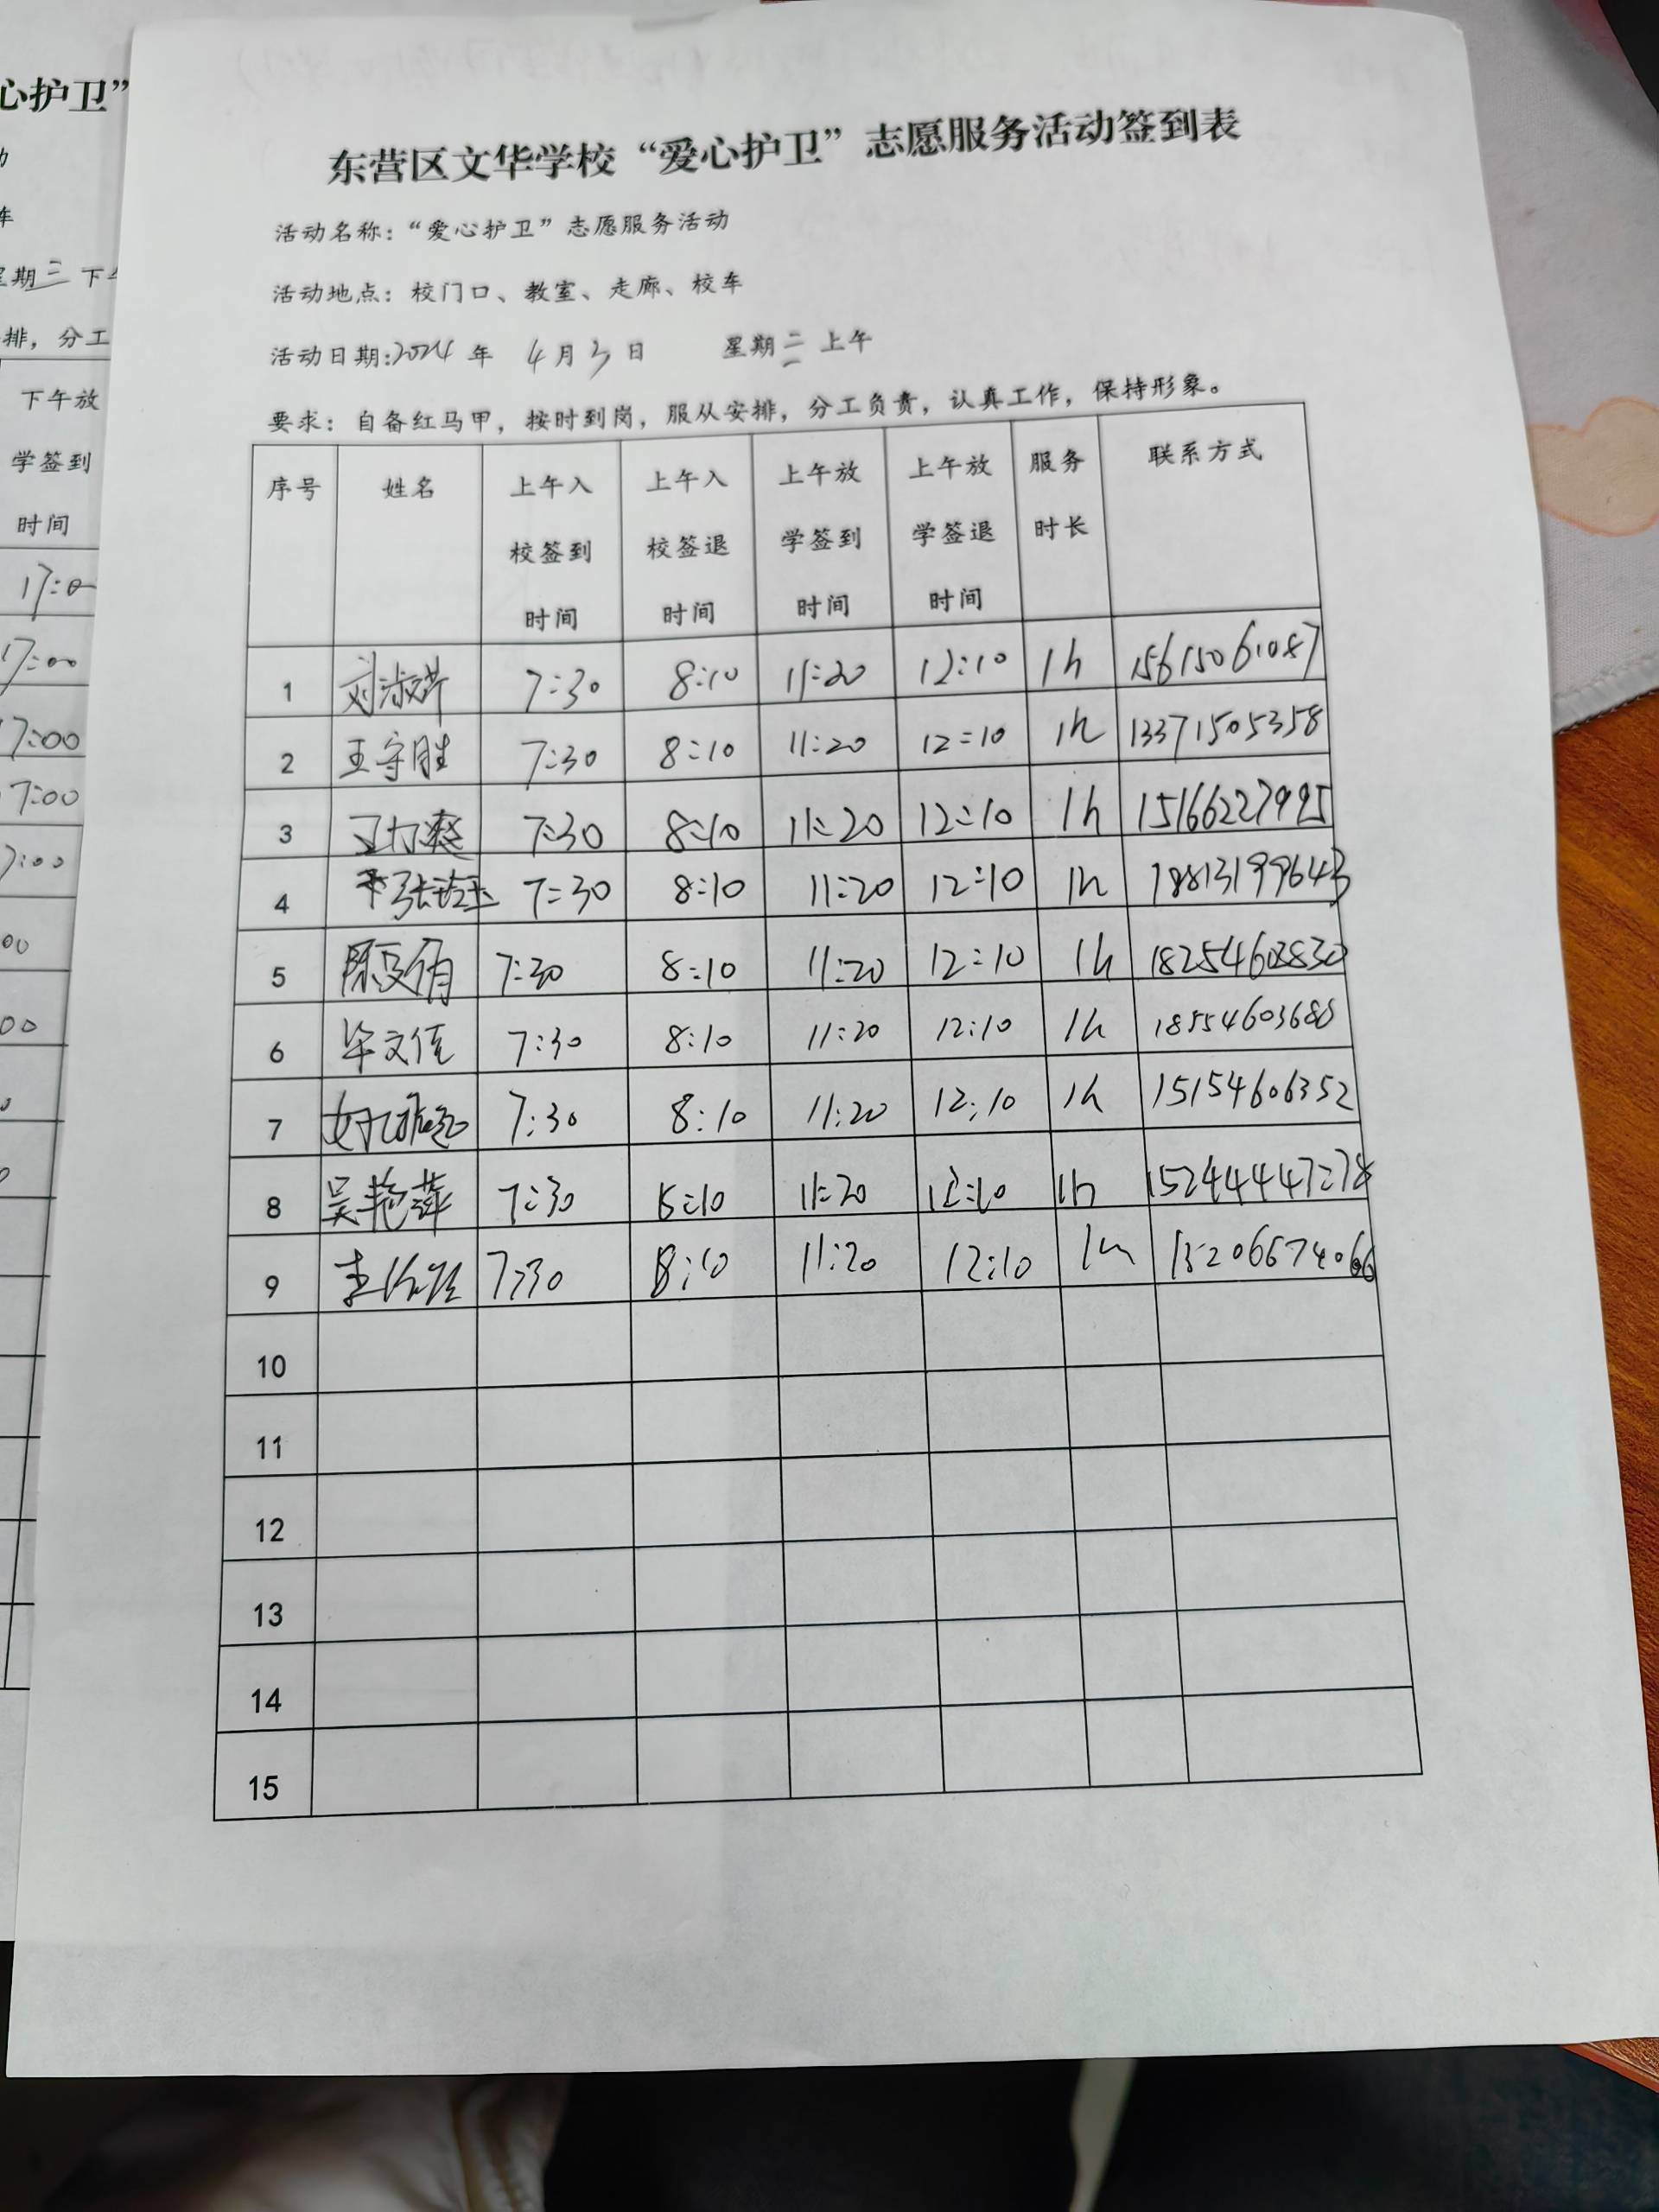 东营区文华学校“爱心护卫”志愿服务活动签到表
活动名称：“爱心护卫”志愿服务活动
活动地点：校门口、教室、走廊、校车
活动日期:2024年 4月3日 星期三 上午
要求：自备红马甲，按时到岗，服从安排，分工负责，认真工作，保持形象。
序号 姓名 上午入校签到时间 上午入校签退时间 上午放学签到时间 上午放学签退时间 服务时长 联系方式
1 7:30 8:10 11:20 12:10 1h 15615061087
2 王守胜 7:30 8:10 11:20 12:10 1h 13371505358
3 7:30 8:10 11:20 12:10 1h 15166227995
4 7:30 8:10 11:20 12:10 1h
5 7:30 8:10 11:20 12:10 1h
6 毕文佳 7:30 8:10 11:20 12:10 1h 18554603680
7 7:30 8:10 11:20 12:10 1h 15154606352
8 吴艳萍 7:30 8:10 11:20 12:10 1h
9 7:30 8:10 11:20 12:10 1h
10
11
12
13
14
15
心护卫”
星期三 下午
排，分工
下午放
学签到
时间
17:00
17:00
17:00
17:00
17:00